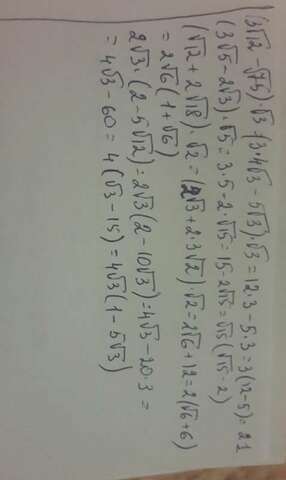 (3√12 - √75)·√3 = (3·4√3 - 5√3)√3 = 12·3 - 5·3 = 3(12-5) = 21
(3√5 - 2√3)·√5 = 3·5 - 2·√15 = 15 - 2√15 = √15(√15 - 2)
(√12 + 2√18)·√2 = (2√3 + 2·3√2)·√2 = 2√6 + 12 = 2(√6 + 6)
= 2√6(1 + √6)
2√3·(2 - 5√12) = 2√3(2 - 10√3) = 4√3 - 20·3 =
= 4√3 - 60 = 4(√3 - 15) = 4√3(1 - 5√3)